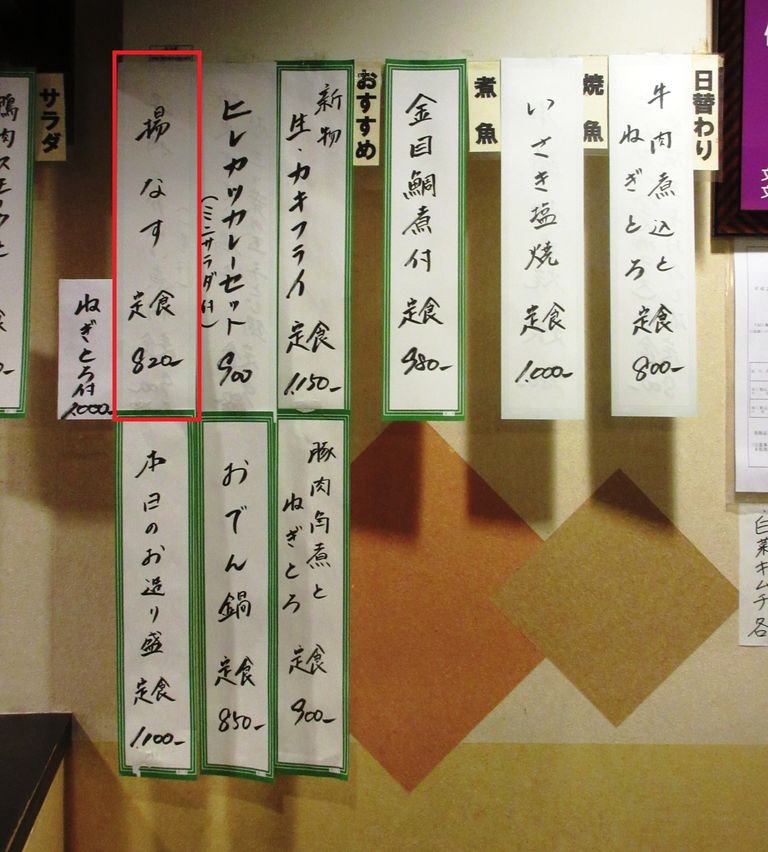 日替わり
牛肉煮込と
ねぎとろ
定食
800-
焼魚
いさき塩焼
定食
1.000-
煮魚
金目鯛煮付
定食
980-
おすすめ
新物
生・カキフライ
定食
1.150-
ヒレカツカレーセット
(ミニサラダ付)
900
揚なす
定食
820-
ねぎとろ付
1000-
サラダ
豚肉角煮と
ねぎとろ
定食
900-
おでん鍋
定食
850-
本日のお造り盛
定食
1.100-
白菜キムチ各